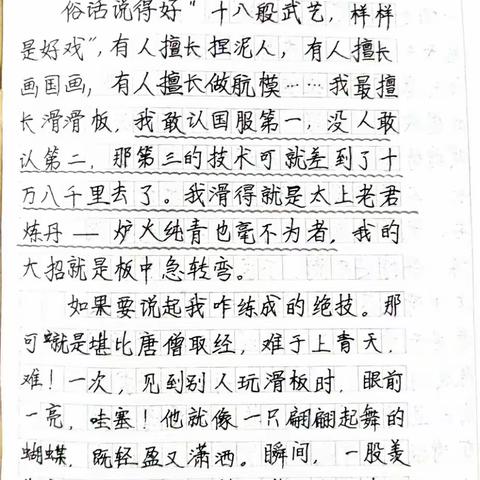 俗话说得好"十八般武艺，样样
是好戏"，有人擅长捏泥人，有人擅长
画国画，有人擅长做航模……我最擅
长滑滑板，我敢认国服第一，没人敢
认第二，那第三的技术可就差到了十
万八千里去了。我滑得就是太上老君
炼丹——炉火纯青也毫不为者，我的
大招就是板中急转弯。
如果要说起我咋练成的绝技。那
可就是堪比唐僧取经，难于上青天，
难！一次，见到别人玩滑板时，眼前
一亮，哇塞！他就像一只翩翩起舞的
蝴蝶，既轻盈又潇洒。瞬间，一股羡